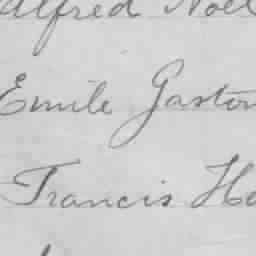 Alfred Noel
Emile Gaston
Francis